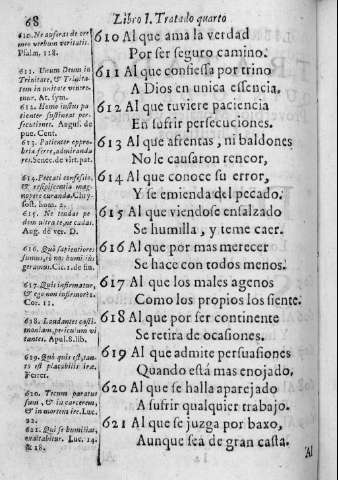 68
Libro I. Tratado quarto
610. Ne auferas de ore
meo verbum veritatis.
Psalm. 118.
611. Unum Deum in
Trinitate, & Trinita-
tem in unitate venere-
mur. At. sym.
612. Homo iustus pa-
tienter sustineat per-
secutiones. August. de
pue. Cent.
613. Patienter oppro-
bria ferre, admirandi
res. Senec. de virt. pat.
614. Peccati confessio,
& respiscentia mag-
nopere curanda. Chry-
sost. hom. 2.
615. Ne tendas pe-
dem ultra te, ne cadas.
Aug. de ver. D.
616. Quò sapientiores
sumus, eò nos humilius
geramus. Cic. 1. de fin.
617. Quis infirmatur,
& ego non infirmor? 2.
Cor. 11.
618. Laudantes casti-
moniam, periculum vi
tantes. Apul. 8. lib.
619. Qui quis est, tan-
ti est placabilis irae.
Ferret.
620. Tecum paratus
sum, & in carcerem,
& in mortem ire. Luc.
22.
621. Qui se humiliat,
exaltabitur. Luc. 14.
& 18.
610 Al que ama la verdad
Por ser seguro camino.
611 Al que confiessa por trino
A Dios en unica essencia.
612 Al que tuviere paciencia
En sufrir persecuciones.
613 Al que afrentas, ni baldones
No le causaron rencor,
614 Al que conoce su error,
Y se emienda del pecado.
615 Al que viendose ensalzado
Se humilla, y teme caer.
616 Al que por mas merecer
Se hace con todos menos.
617 Al que los males agenos
Como los propios los siente.
618 Al que por ser continente
Se retira de ocasiones.
619 Al que admite persuasiones
Quando está mas enojado.
620 Al que se halla aparejado
A sufrir qualquier trabajo.
621 Al que se juzga por baxo,
Aunque sea de gran casta.
Al